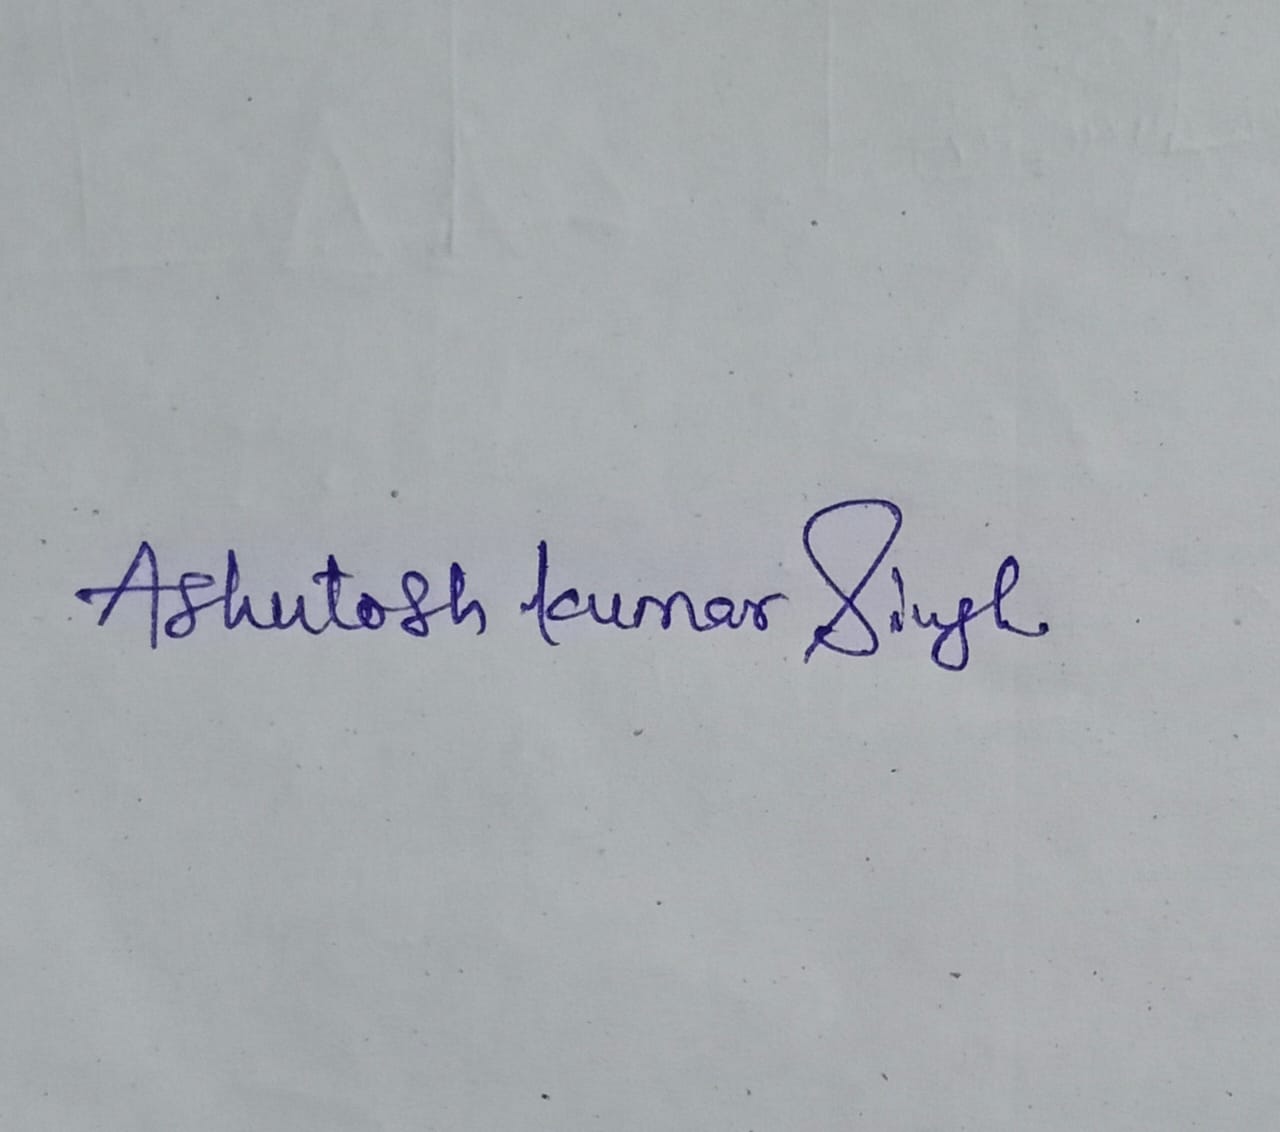 Ashutosh kumar Singh